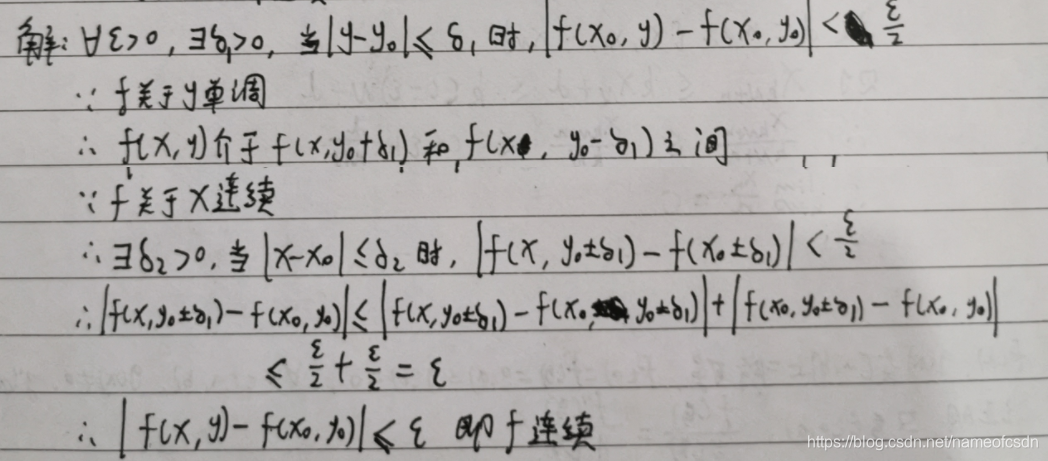 解：∀ε>0，∃δ₁>0，当|y-y₀|≤δ₁时，|f(x₀,y)-f(x₀,y₀)|<ε/2
∵ f关于y单调
∴ f(x,y)介于f(x,y₀+δ₁)和f(x,y₀-δ₁)之间
∵ f关于x连续
∴ ∃δ₂>0，当|x-x₀|≤δ₂时，|f(x,y₀±δ₁)-f(x₀±δ₁)|<ε/2
∴ |f(x,y₀±δ₁)-f(x₀,y₀)|≤|f(x,y₀±δ₁)-f(x₀,y₀±δ₁)|+|f(x₀,y₀±δ₁)-f(x₀,y₀)|
≤ε/2+ε/2=ε
∴ |f(x,y)-f(x₀,y₀)|≤ε 即f连续
https://blog.csdn.net/nameofcsdn